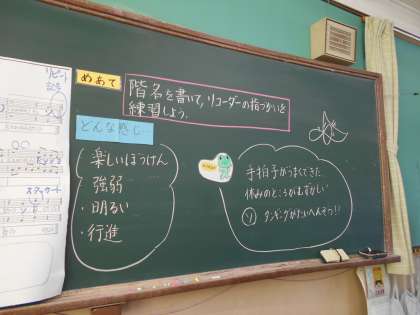 リピート
記号
スタッカート
めあて
階名を書いて、リコーダーの指づかいを
練習しよう。
どんな感じ
・楽しいぼうけん
・強弱
・明るい
・行進
手拍子がうまくできた
休みのところがむずかしい
タンギングがたいへんそう!!